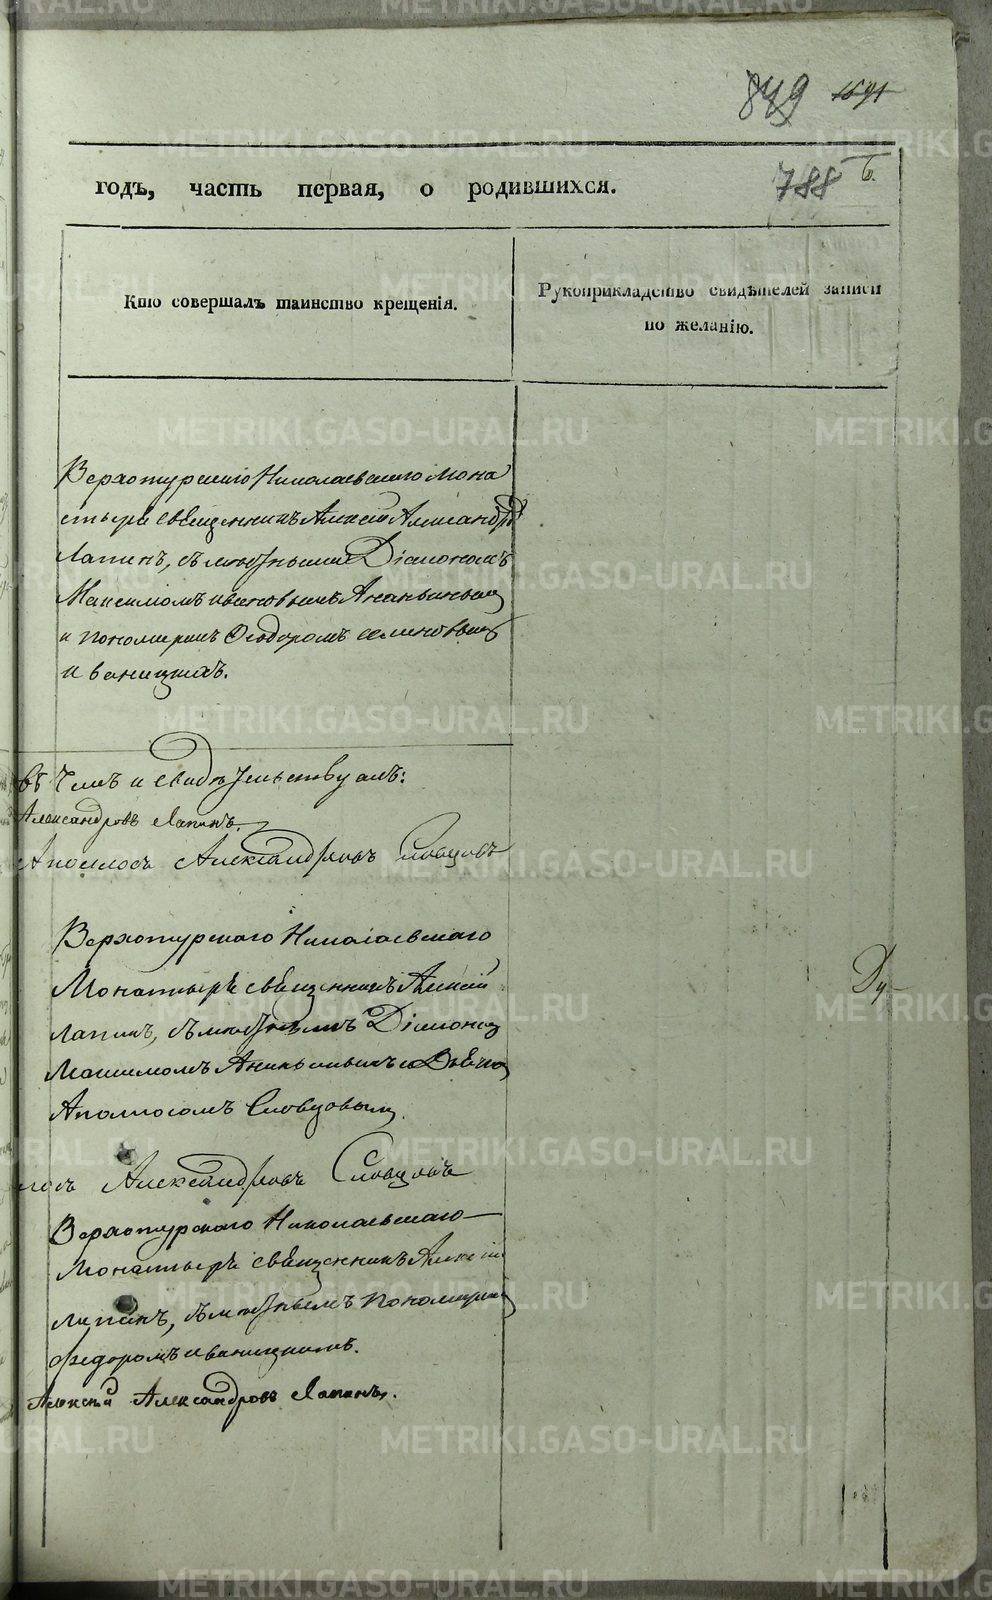 849 1591
788 б.
годъ, часть первая, о родившихся.
Кто совершалъ таинство крещенія.
Рукоприкладство свидѣтелей записи
по желанію.
Верхотурскаго Николаевскаго Мона
стыря священникъ Алексій Александръ
Лапинъ, съ мѣстнымъ Діакономъ
Максимомъ Ивановымъ Ананьинымъ
и пономаремъ Ѳеодоромъ
Иваницкимъ.
въ чемъ и свидѣтельствуемъ:
Александровъ Лапинъ.
Аполлосъ Александровъ Словцовъ
Верхотурскаго Николаевскаго
Монастыря священникъ Алексій
Лапинъ, съ мѣстнымъ Діакономъ
Максимомъ Ананьинымъ и Дьячкомъ
Аполлосомъ Словцовымъ.
лосъ Александровъ Словцовъ
Верхотурскаго Николаевскаго
Монастыря священникъ Алексій
Лапинъ, съ мѣстнымъ Пономаремъ
Федоромъ Иваницкимъ.
Алексій Александровъ Лапинъ.
METRIKI.GASO-URAL.RU